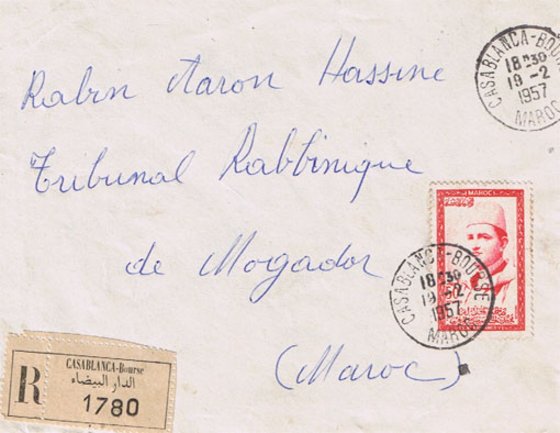 CASABLANCA-BOURSE
18H30
19-2
1957
MAROC
Rabin Aaron Hassine
Tribunal Rabbinique
de Mogador
(Maroc)
MAROC
CASABLANCA-BOURSE
18H30
19-2
1957
MAROC
R
CASABLANCA-Bourse
الدار البيضاء
1780